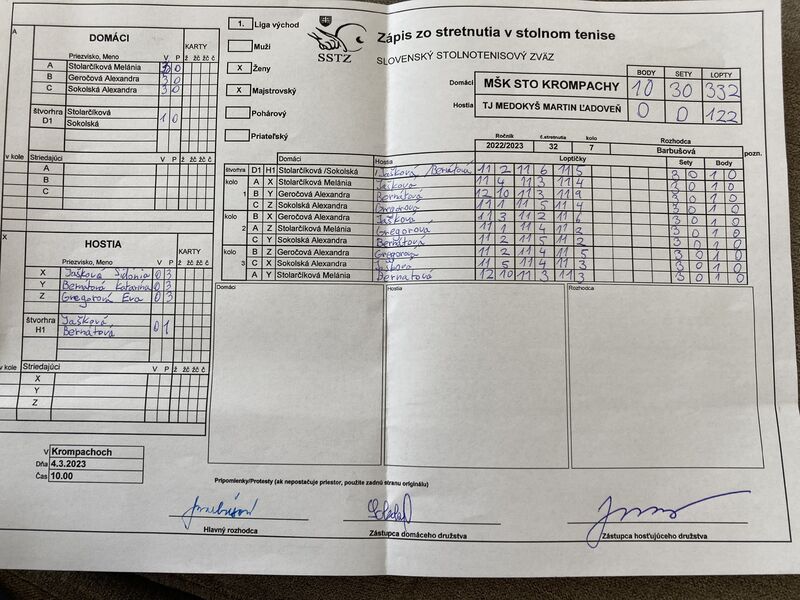 1. Liga východ
Muži
X Ženy
X Majstrovský
Pohárový
Priateľský
SSTZ
Zápis zo stretnutia v stolnom tenise
SLOVENSKÝ STOLNOTENISOVÝ ZVÄZ
BODY SETY LOPTY
Domáci MŠK STO KROMPACHY 10 30 332
Hostia TJ MEDOKYŠ MARTIN ĽADOVEŇ 0 0 122
Ročník č.stretnutia kolo Rozhodca
2022/2023 32 7 Barbušová
A
DOMÁCI
Priezvisko, Meno V P KARTY ž žč žč č
A Stolarčíková Melánia 3 0
B Geročová Alexandra 3 0
C Sokolská Alexandra 3 0
štvorhra D1 Stolarčíková 1 0
Sokolská
v kole Striedajúci V P ž žč žč č
A
B
C
X
HOSTIA
Priezvisko, Meno V P KARTY ž žč žč č
X Jašková Sidónia 0 3
Y Bernátová Katarína 0 3
Z Gregorová Eva 0 3
štvorhra H1 Jašková 0 1
Bernátová
v kole Striedajúci V P ž žč žč č
X
Y
Z
V Krompachoch
Dňa 4.3.2023
Čas 10.00
Domáci Hostia Loptičky Sety Body pozn.
štvorhra D1 H1 Stolarčíková /Sokolská Jašková /Bernátová 11 2 11 6 11 5 3 0 1 0
kolo A X Stolarčíková Melánia Jašková 11 4 11 3 11 4 3 0 1 0
1 B Y Geročová Alexandra Bernátová 12 10 11 3 11 9 3 0 1 0
C Z Sokolská Alexandra Gregorová 11 1 11 5 11 4 3 0 1 0
kolo B X Geročová Alexandra Jašková 11 3 11 2 11 6 3 0 1 0
2 A Z Stolarčíková Melánia Gregorová 11 1 11 4 11 2 3 0 1 0
C Y Sokolská Alexandra Bernátová 11 2 11 5 11 2 3 0 1 0
kolo B Z Geročová Alexandra Gregorová 11 2 11 4 11 5 3 0 1 0
3 C X Sokolská Alexandra Jašková 11 5 11 4 11 3 3 0 1 0
A Y Stolarčíková Melánia Bernátová 12 10 11 3 11 3 3 0 1 0
Domáci Hostia Rozhodca
Pripomienky/Protesty (ak nepostačuje priestor, použite zadnú stranu originálu)
Hlavný rozhodca Zástupca domáceho družstva Zástupca hosťujúceho družstva